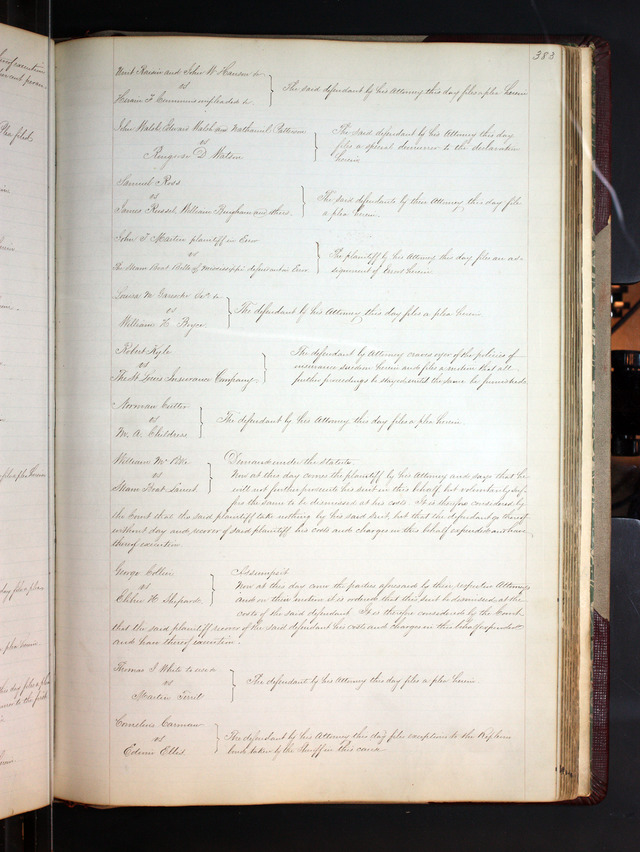 383
John W. Hanson &c
vs
The said defendant by his Attorney this day files a plea herein
Hiram F. Cummins impleaded &c.
John Walsh, Edward Walsh and Nathaniel Patterson
vs
Ringrose D. Watson
The said defendant by his Attorney this day
files a special demurrer to the declaration
herein
Samuel Ross
vs
James Russel, William Bingham and others
The said defendants by their Attorney this day file
a plea herein.
John F. Martin plaintiff in Error
vs
The Steam Boat Belle of Mississippi defendant in Error
The plaintiff by his Attorney this day files an as-
signment of errors herein
Louisa M.
vs
William H. Boyer
The defendant by his Attorney this day files a plea herein
Robert Kyle
vs
The St Louis Insurance Company
The defendant by Attorney craves oyer of the policies of
insurance sued on herein and files a motion that all
further proceedings be stayed until the same be furnished.
Norman Cutter
vs
M. A. Childress
The defendant by his Attorney this day files a plea herein
William
vs
Steam Boat Laurel
Demand under the statute
Now at this day comes the plaintiff by his Attorney and says that he
will not further prosecute his suit in this behalf but voluntarily suf-
fers the same to be dismissed at his costs. It is therefore considered by
the Court that the said plaintiff take nothing by his said suit, but that the defendant go thereof
without day and recover of said plaintiff his costs and charges in this behalf expended and have
thereof execution.
George Collier
vs
Elihu H. Shepard
Assumpsit
Now at this day come the parties aforesaid by their respective Attorneys
and on their motion it is ordered that this suit be dismissed at the
costs of the said defendant. It is therefore considered by the Court
that the said plaintiff recover of the said defendant his costs and charges in this behalf expended
and have thereof execution.
Thomas J. White to use &
vs
Martin
The defendant by his Attorney this day files a plea herein
Cornelius Carman
vs
Edwin Ellis
The defendant by his Attorney this day files exceptions to the Replevin
bond taken by the Sheriff in this cause